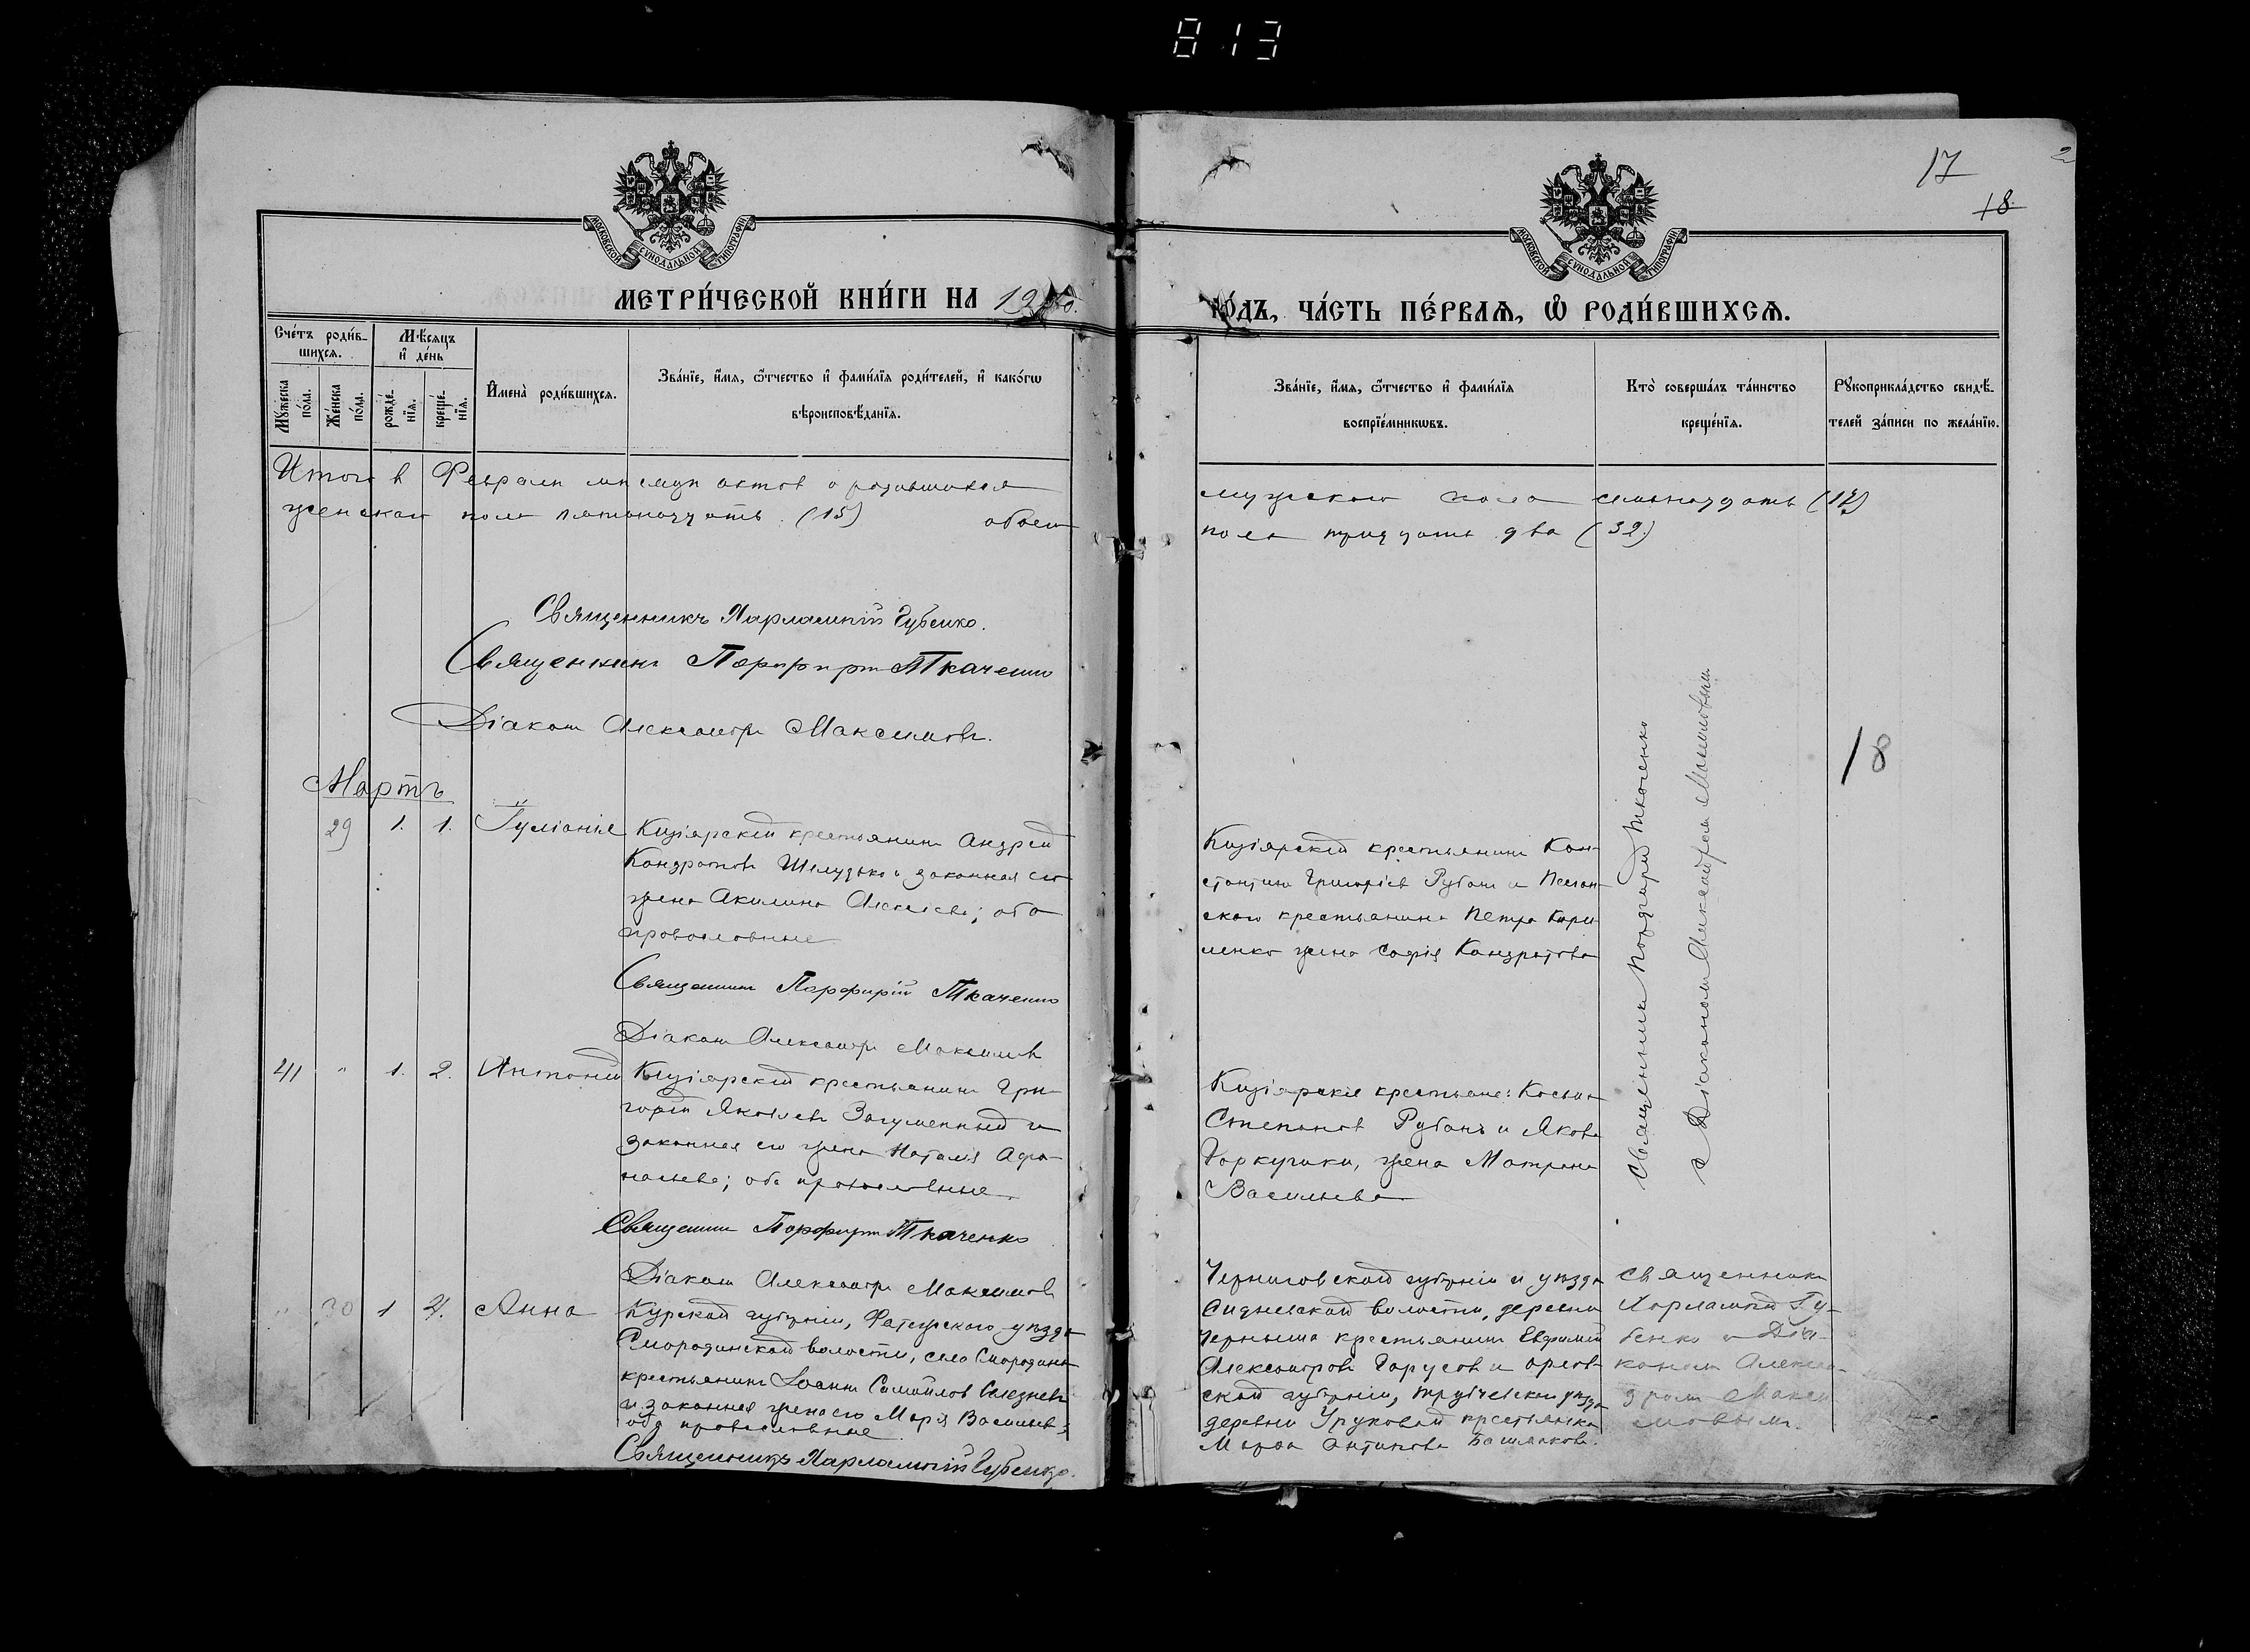 813
17
18
2
МОСКОВСКОЙ СУНОДАЛЬНОЙ ТИПОГРАФІИ
МОСКОВСКОЙ СУНОДАЛЬНОЙ ТИПОГРАФІИ
МЕТРИ́ЧЕСКОЙ КНИ́ГИ НА 19
ГО́ДЪ, ЧА́СТЬ ПЕ́РВАѦ, Ѡ҆ РОДИ́ВШИХСѦ.
Сче́тъ роди́в-
шихсѧ.
Мѣ́сѧцъ
и҆ де́нь
Мꙋ́жеска
по́ла.
Же́нска
по́ла.
рожде́-
нїѧ.
креще́-
нїѧ.
И҆мена̀ роди́вшихсѧ.
Зва́нїе, и҆́мѧ, ѻ҆́тчество и҆ фами́лїѧ роди́телей, и҆ како́гѡ
вѣроисповѣ́данїѧ.
Зва́нїе, и҆́мѧ, ѻ҆́тчество и҆ фами́лїѧ
воспрїе́мникѡвъ.
Кто̀ соверша́лъ та́инство
креще́нїѧ.
Рꙋкоприкла́дство свидѣ́-
телей за́писи по жела́нїю.
Итого в Феврале месяце актов о родившихся
женскаго пола пятнадцать (15) обоего
мужского пола семнадцать (17)
пола тридцать два (32)
Священникъ Харлампій Губенко.
Священникъ Порфирій Ткаченко
Діаконъ Александръ Максимовъ.
Мартъ
29 1. 1. Іуліанія
Кизіярскій крестьянинъ Андрей
Кондратовъ Шелудько и законная его
жена Акилина Алексѣева; оба
православные
Священникъ Порфирій Ткаченко
Діаконъ Александръ Максимовъ
Кизіярскій крестьянинъ Кон-
стантинъ Григоріевъ Рубанъ и
скаго крестьянина Петра Кири-
ленко жена Софія Кондратова
Священникъ Порфирій Ткаченко
съ Діакономъ Александромъ Максимовымъ
18
41 " 1. 2. Антоній
Кизіярскій крестьянинъ Гри-
горій Яковлевъ Загуменный и
законная его жена Наталія Афа-
насьева; оба православные
Священникъ Порфирій Ткаченко
Діаконъ Александръ Максимовъ
Кизіярскіе крестьяне: Косьма
Степановъ Рубанъ и Якова
жена Матрона
Васильева
" 30 1 4. Анна
Курской губерніи, Фатежскаго уѣзда
Смородинской волости, села Смородина
крестьянинъ Іоаннъ Самойловъ Селезневъ
и законная жена его Марія Васильева
оба православные
Священникъ Харлампій Губенко.
Черниговской губерніи и уѣзда
волости, деревни
Черныша крестьянинъ Евфимій
Александровъ и Орлов-
ской губерніи, Трубчевскаго уѣзда
деревни крестьянка
Марѳа Антипова Башмакова.
Священникъ
Харлампій Гу-
бенко и Діа-
кономъ Алексан-
дромъ Макси-
мовымъ.